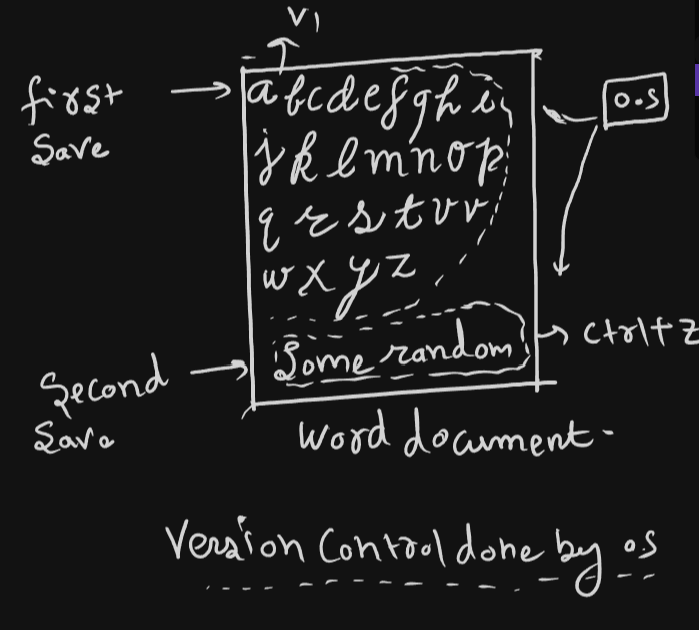 V1
first
Save
abcdefghi
jklmnop
qrstuv
wxyz
o.s
Some random
ctrl+z
Second
Save
Word document.
Version Control done by o.s